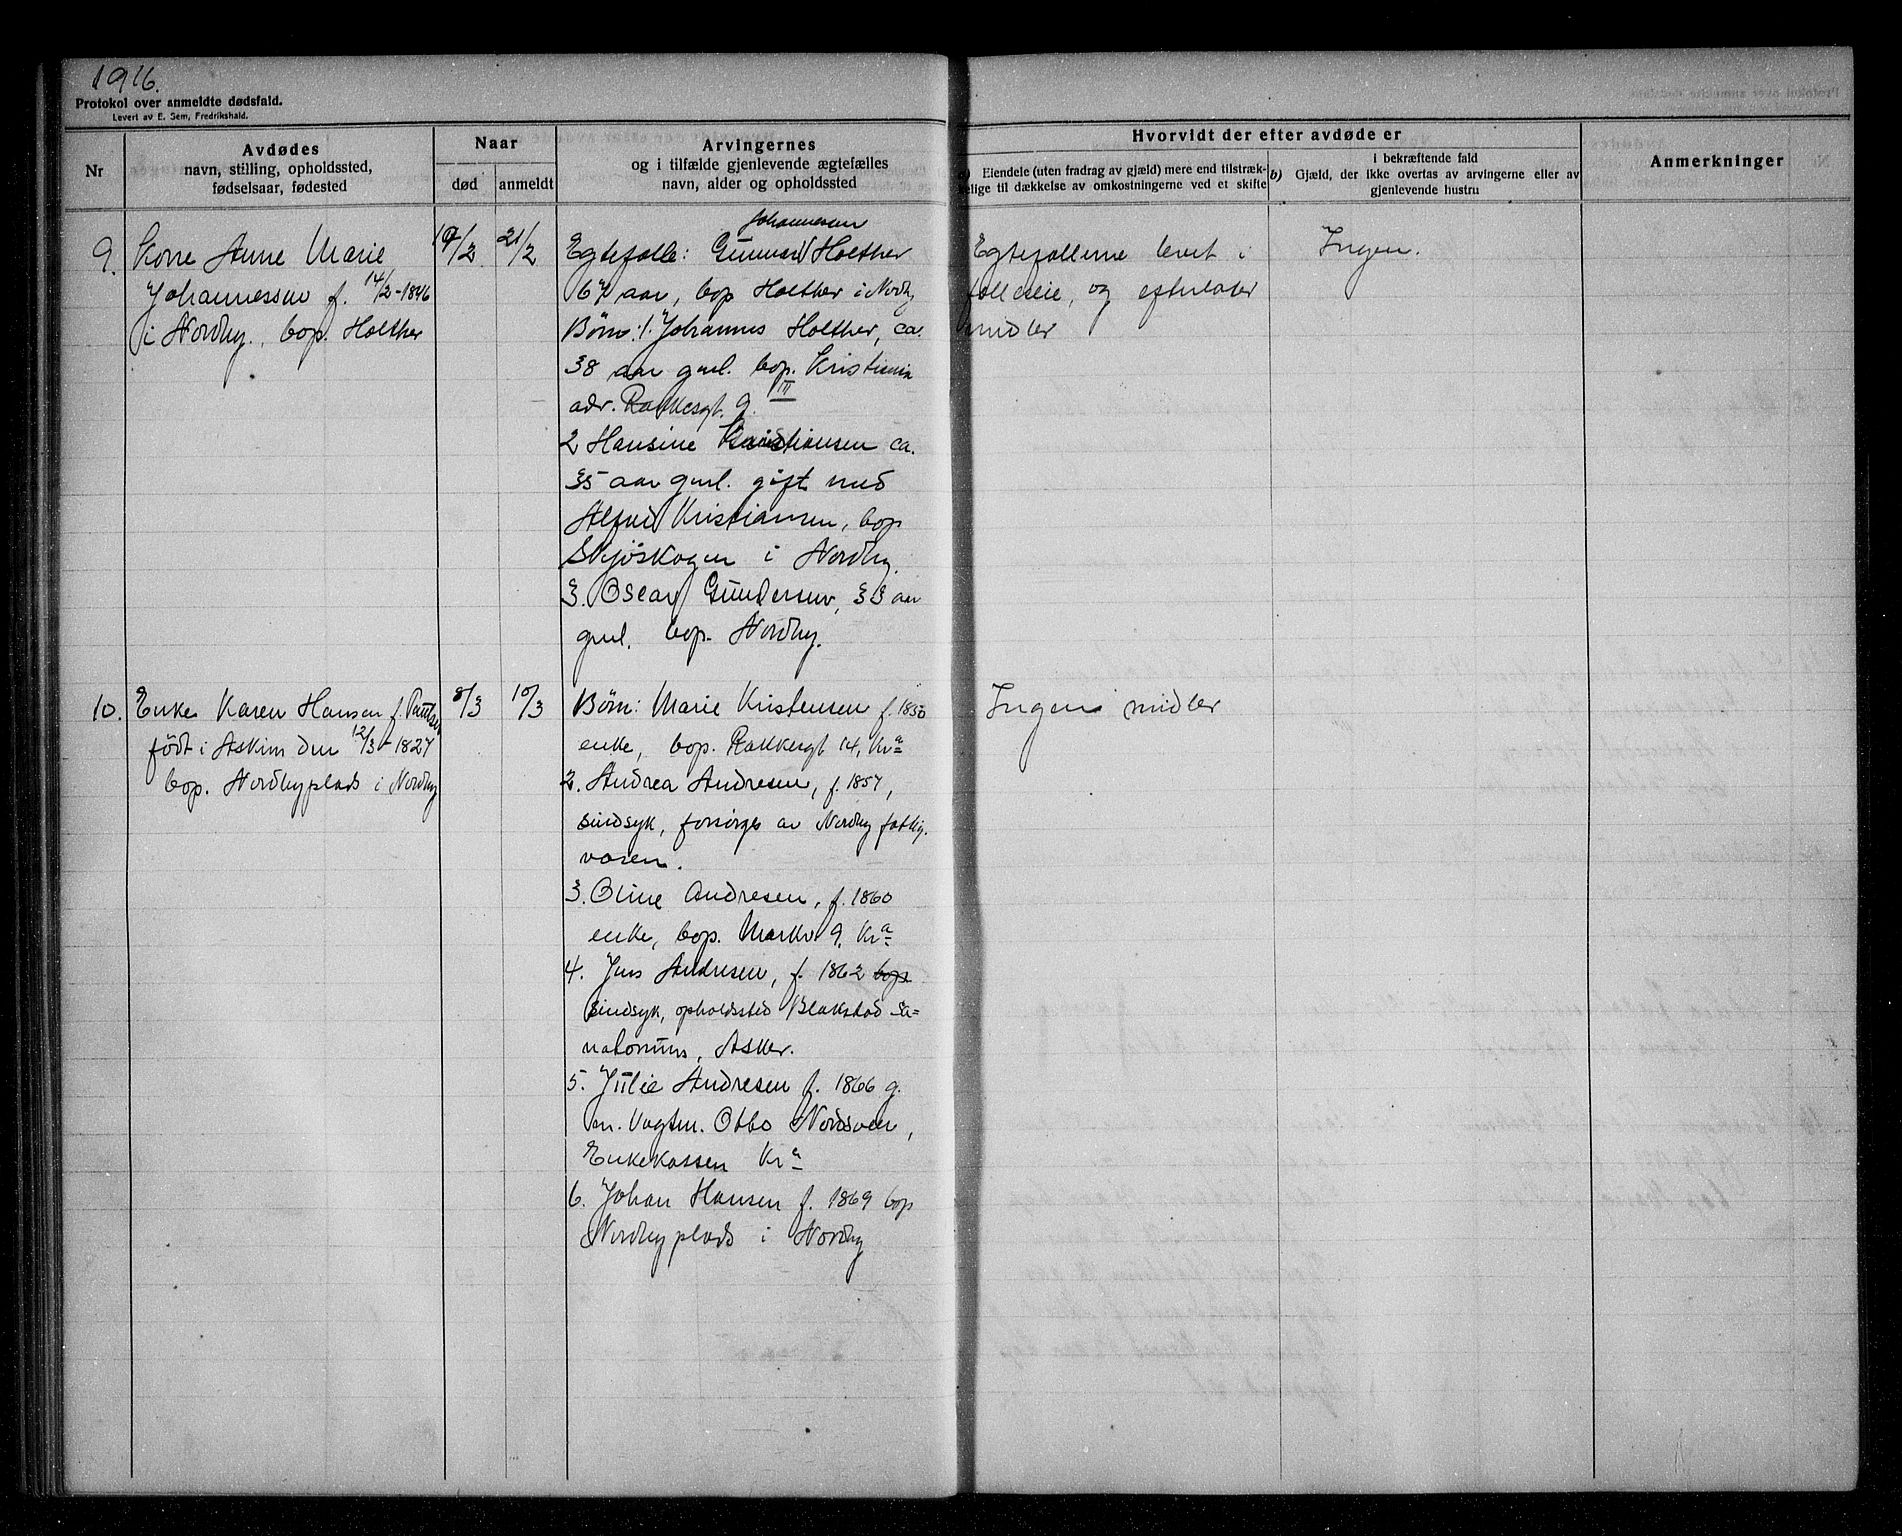 1916.
Protokol over anmeldte dødsfald.
Levert av E. Sem, Fredrikshald.
Nr
Avdødes
navn, stilling, opholdssted,
fødselsaar, fødested
Naar
død
anmeldt
Arvingernes
og i tilfælde gjenlevende ægtefælles
navn, alder og opholdssted
Hvorvidt der efter avdøde er
Eiendele (uten fradrag av gjæld) mere end tilstræk-
kelige til dækkelse av omkostningerne ved et skifte
i bekræftende fald
b) Gjæld, der ikke overtas av arvingerne eller av
gjenlevende hustru
Anmerkninger
9. Kone Anne Marie
Johannessen f. 14/2-1846
i Nordby, bop. Holther
19/2
21/2
Johannessen
Egtefælle: Gunnar Holther
67 aar, bop Holther i Nordby
Børn: 1. Johannes Holther, ca.
38 aar gml. bop. Kristiania
adr. Rakkesgt. 9 III
2 Hansine Kristiansen ca.
35 aar gml. gift med
Alfred Kristiansen, bop
Skjöskogen i Nordby.
3. Oscar Gundersen, 33 aar
gml. bop. Nordby.
Egtefællerne levet i
fælleseie, og efterlater
midler
Ingen.
10. Enke Karen Hansen f. Paulsen
födt i Askim den 12/3-1827
bop. Nordbyplads i Nordby
8/3
10/3
Børn: Marie Kristensen f. 1850
enke, bop. Rakkesgt 14, Kra
2. Andrea Andresen, f. 1857,
sindsyk, forsörges av Nordby fattig-
væsen.
3. Oline Andresen, f. 1860
enke, bop. Markv 9, Kra
4. Jens Andresen, f. 1862 bop
sindsyk, opholdssted Blakstad Sa=
natorium, Asker.
5. Julie Andresen f. 1866 g.
m. Vogtm. Otto Nordsveen,
Enkekassen Kra
6. Johan Hansen f. 1869 bop
Nordbyplads i Nordby
Ingen midler